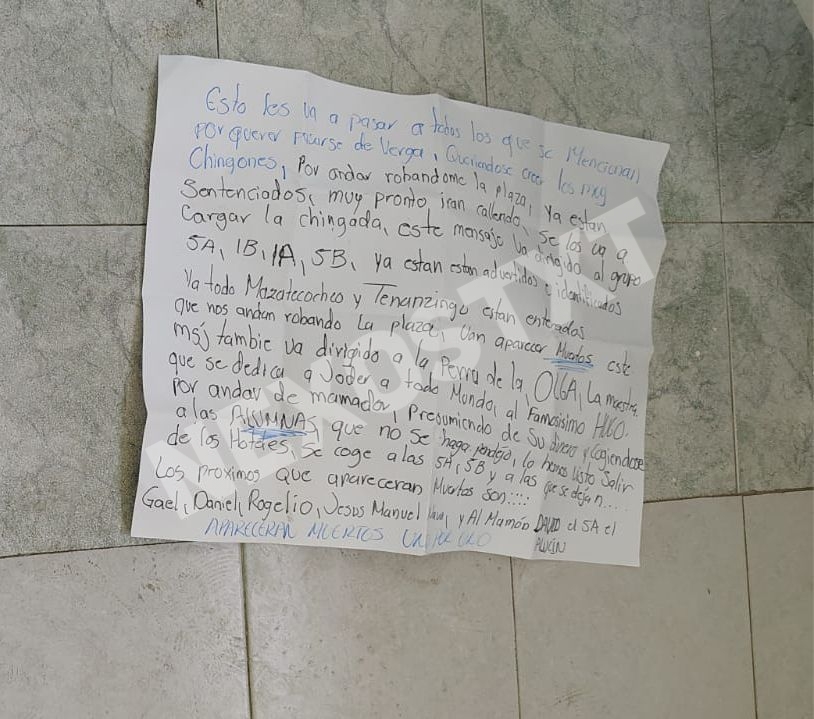 Esto les va a pasar a todos los que se Mencionan
Por querer Pasarse de Verga, Queriendose creer los muy
Chingones, Por andar robandome la plaza, Ya estan
Sentenciados, muy pronto iran callendo, se los va a
Cargar la chingada, este mensaje va dirigido al grupo
5A, 1B, 1A, 5B, ya estan estan advertidos e identificados
Ya todo Mazatecocheo y Tenanzingo estan enterados
que nos andan robando La plaza, van aparecer Muertos este
msj tambie va dirigido a la Perra de la, OLGA, La maestra
que se dedica a Joder a todo Mundo, al Famosisimo HUGO.
Por andar de mamador, Presumiendo de Su dinero y Cogiendose
a las ALUMNAS, que no se haga pendejo, lo hemos visto Salir
de los Hoteles, se coge a las 5A, 5B y a las que se dejan....
Los proximos que apareceran Muertos son::::
Gael, Daniel, Rogelio, Jesus Manuel y Al Mamón DAVID el 5A el
ALUCIN
APARECERAN MUERTOS UN POR UNO
NEXOSTYT